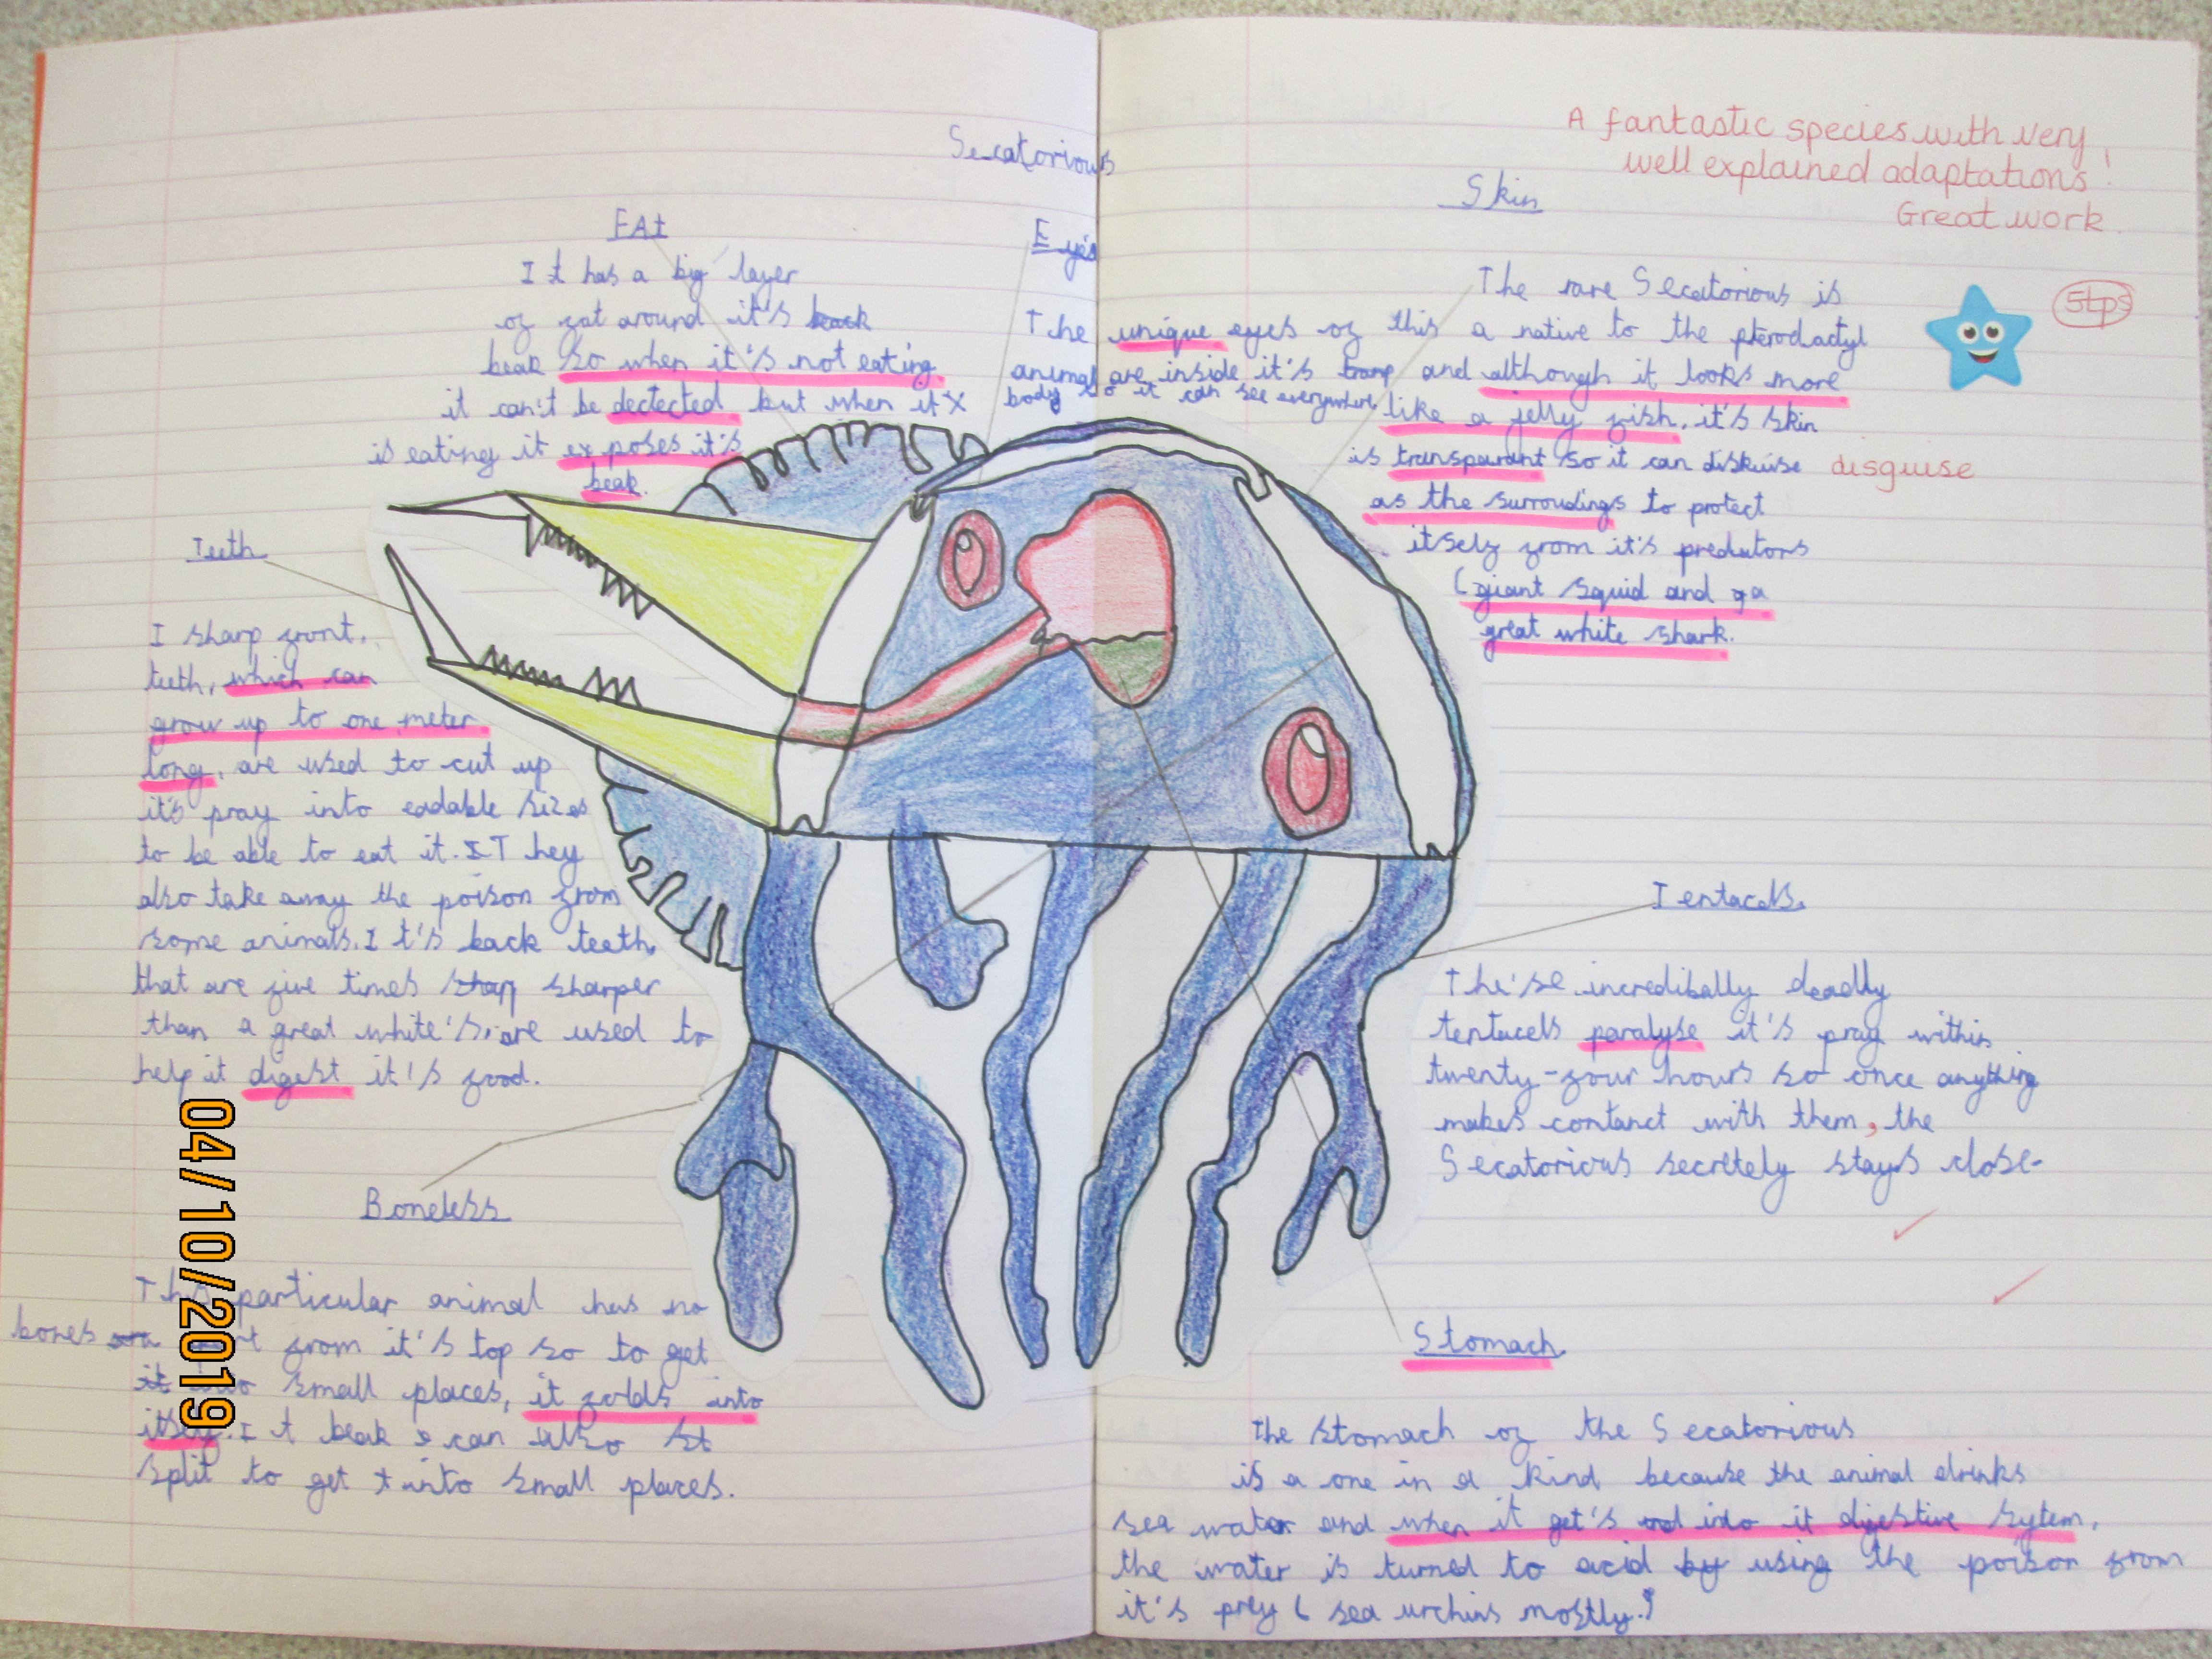 Secatorious
A fantastic species with very
well explained adaptations!
Great work.
5tps
FAt
It has a big layer
of fat around it's back
beak so when it's not eating
it can't be dectected but when it x
is eating it exposes it's
beak.
Eyes
The unique eyes of this
animal are inside it's tramp
body so it can see everywhere.
Skin
The rare Secatorious is
a native to the pterodactyl
and although it looks more
like a jelly fish, it's skin
is transparant so it can diskuise
disguise
as the surroudings to protect
itself from it's predutors
(giant squid and
great white shark.
Teeth
I sharp front,
teeth, which can
grow up to one meter
long, are used to cut up
it's pray into eadable sizes
to be able to eat it. They
also take away the poison from
some animals. It's back teeth,
that are five times sharper
than a great white's, are used to
help it digest it's food.
Boneless
This particular animal has no
bones from it's top so to get
it into small places, it folds into
itself. It beak can also st
split to get into small places.
Tentacels
The'se incredibally deadly
tentacels paralyse it's pray within
twenty-four hours so once anything
makes contanct with them, the
Secatorious secretely stays close-
Stomach
The stomach of the Secatorious
is a one in a kind because the animal drinks
sea water and when it get's into it digestive sytem,
the water is turned to acid by using the poison from
it's prey (sea urchins mostly.)
04/10/2019